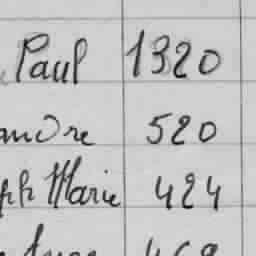 Paul 1320
andre 520
ph Marie 424